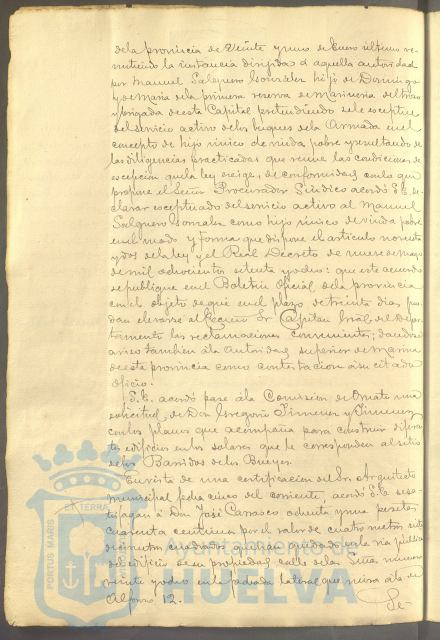 de la provincia de Veinte y uno de Enero ultimo re-
mitiendo la instancia dirigida á aquella autoridad
por Manuel Salguero Gonzalez hijo de Domingo
y de Maria de la primera reserva de Marineria del
brigada de esta Capital pretendiendo se le exceptue
del servicio activo de los buques de la Armada en el
concepto de hijo unico de viuda pobre y resultando de
las diligencias practicadas que reune las condiciones de
escepcion que la ley exige, de conformidad con lo que
propone el Señor Procurador Sindico acordó S.E. de-
clarar exceptuado del servicio activo al Manuel
Salguero Gonzalez como hijo unico de viuda pobre
en el modo y forma que dispone el articulo noventa
y dos de la ley y el Real Decreto de nueve de mayo
de mil ochocientos setenta y ocho: que este acuerdo
se publique en el Boletin Oficial de la provincia
con el objeto de que en el plazo de treinta dias pue-
dan elevarse al Excmo Sr Capitan Gral del Depar-
tamento las reclamaciones convenientes; dandose
aviso tambien á la Autoridad superior de Marina
de esta provincia como contestacion á su citado
oficio.
S.E. acordó pase á la Comision de Ornato una
solicitud de Don Gregorio Jimenez y Jimenez
con los planos que acompaña para construir diferen-
tes edificios en los solares que le corresponden al sitio
de los Barridos de los Bueyes.
En vista de una certificacion del Sr. Arquitecto
municipal fecha cinco del corriente, acordó S.E. se sa-
tisfagan á Don José Carrasco ochenta y una pesetas
cuarenta centimos por el valor de cuatro metros siete
decimetros cuadrados que han quedado de la via publica
del edificio de su propiedad calle de la numero
veinte y ocho en la fachada lateral que mira á la de
Alfonso 12.
Se-
PORTUS MARIS
ET TERRAE
Ayuntamiento de
HUELVA